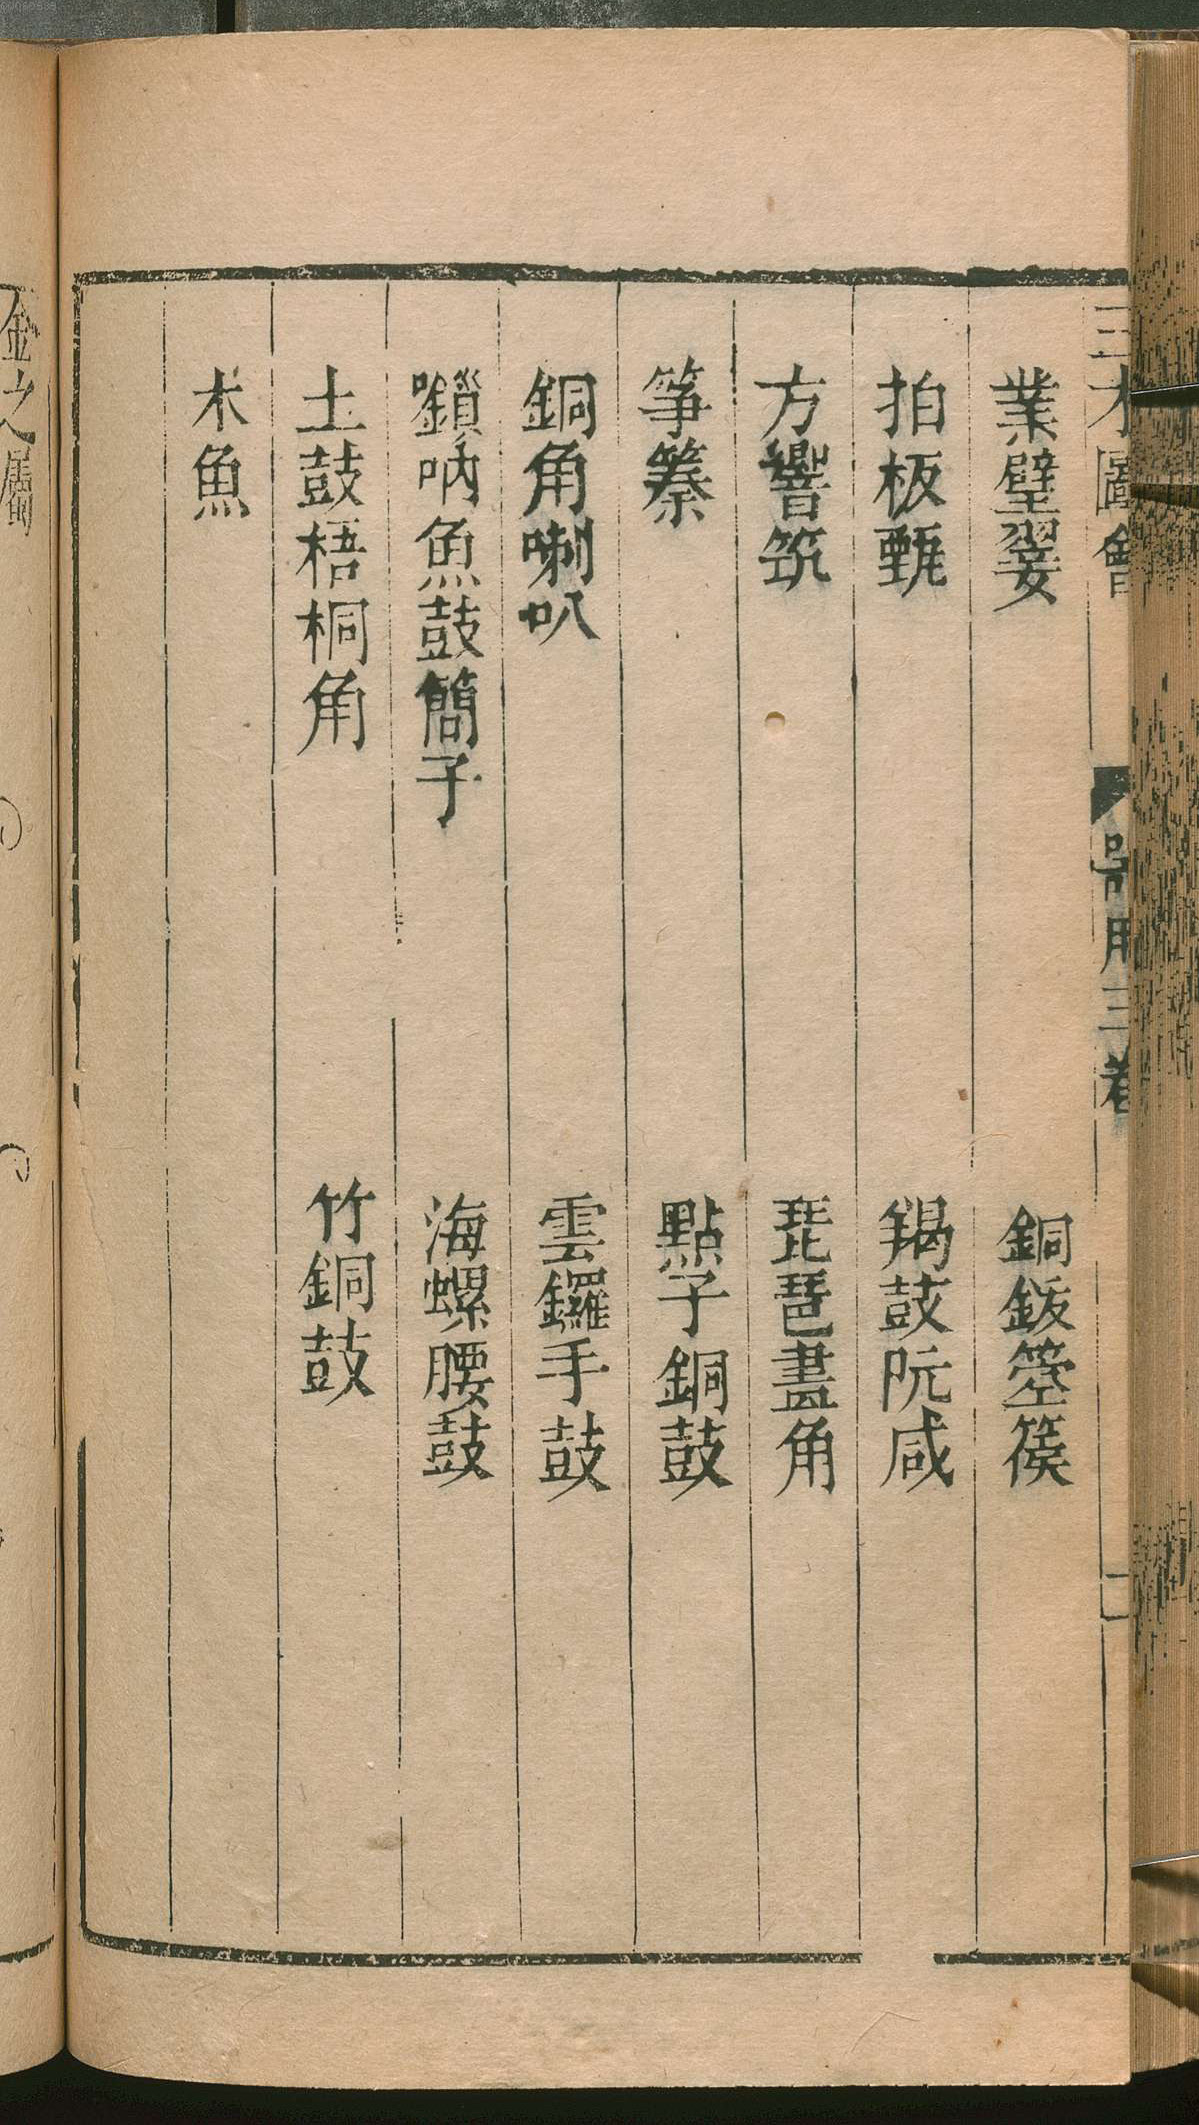 三才圖會 器用三卷 二
業璧翣 銅鈸箜篌
拍板甄 羯鼓阮咸
方響筑 琵琶畫角
箏 點子銅鼓
銅角喇叭 雲鑼手鼓
鎖吶魚鼓簡子 海螺腰鼓
土鼓梧桐角 竹銅鼓
木魚
金之屬